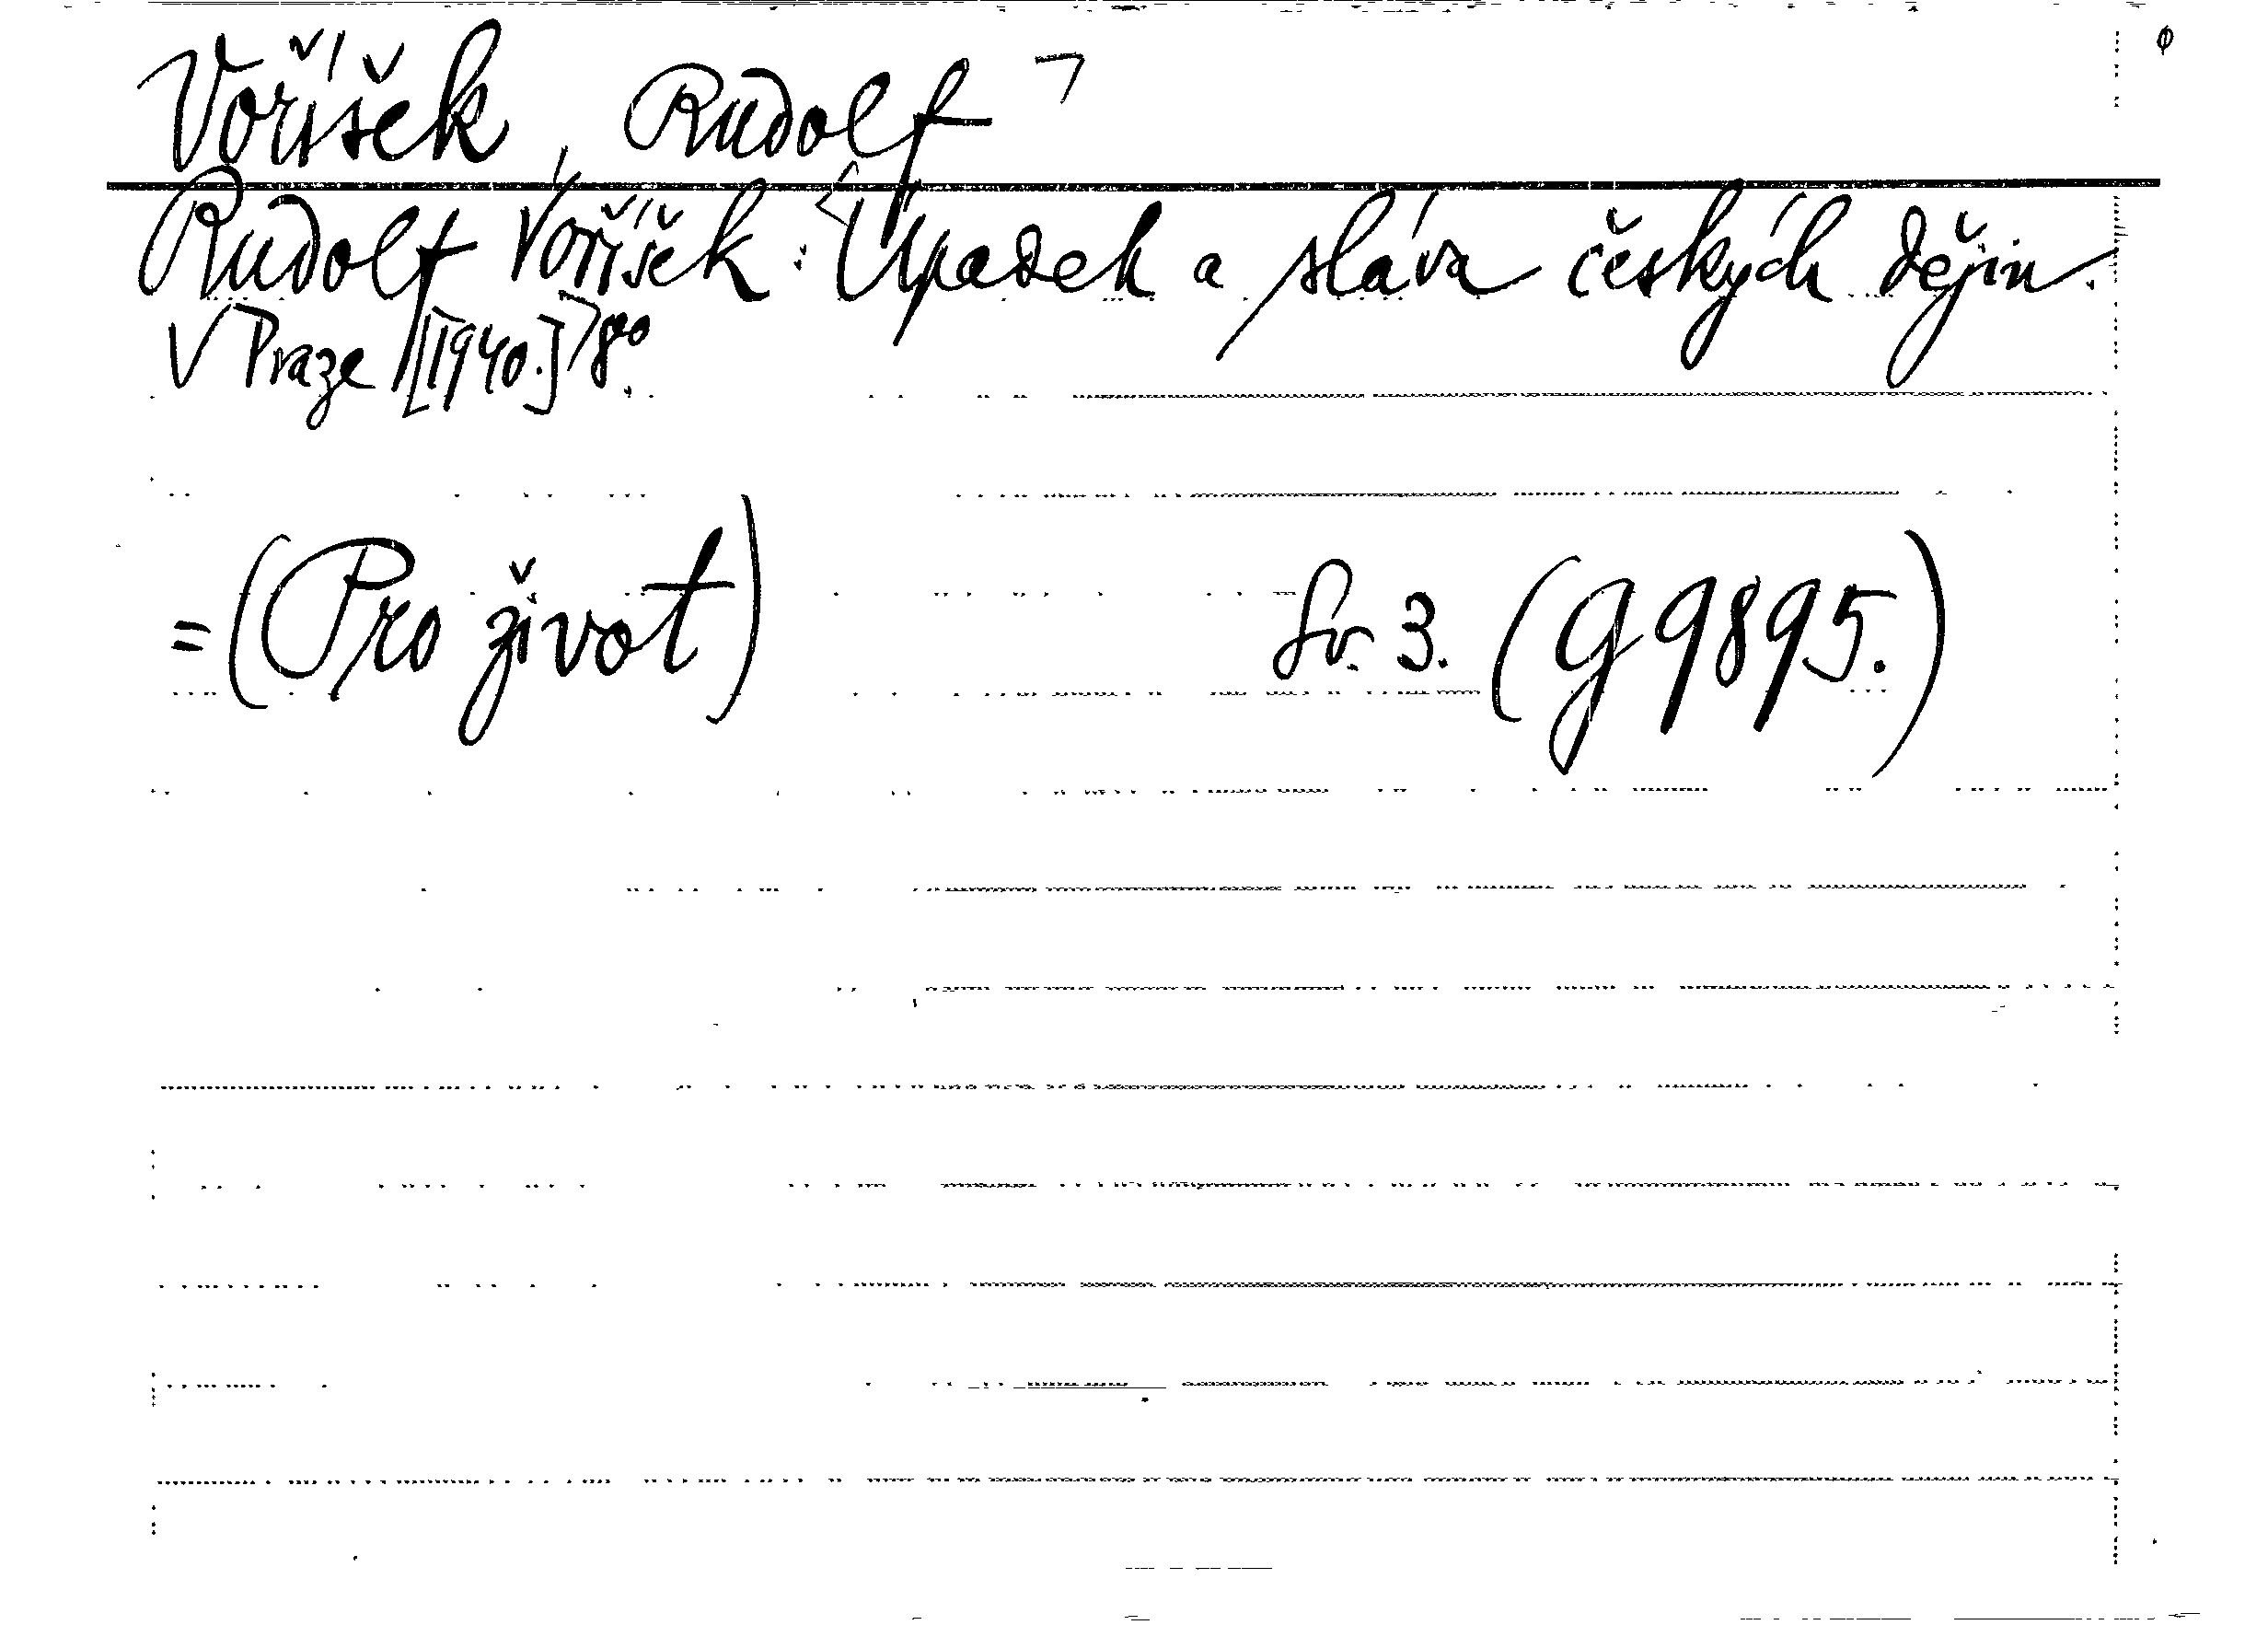 Voříšek, Rudolf
Rudolf Voříšek: Úpadek a sláva českých dějin.
V Praze [1940.] 8°.
= (Pro život) Sv. 3. (G 9895.)